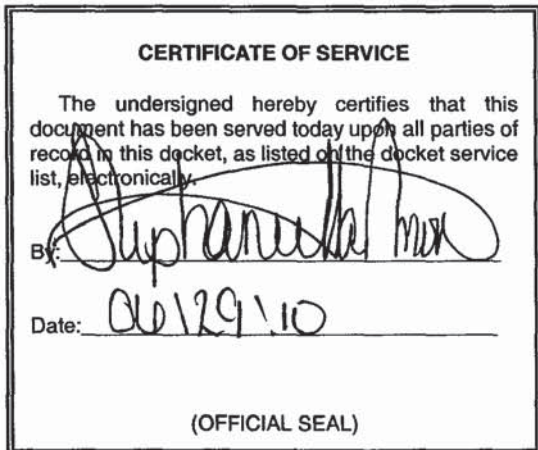 CERTIFICATE OF SERVICE
The undersigned hereby certifies that this
document has been served today upon all parties of
record in this docket, as listed on the docket service
list, electronically.
By:
Date: 06\29\10
(OFFICIAL SEAL)